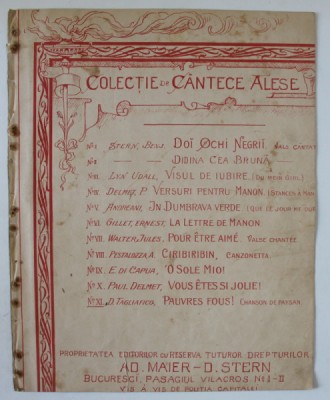 COLECȚIE DE CÂNTECE ALESE
No I STERN, BENJ. DOĪ OCHI NEGRII
No II DIDINA CEA BRUNĂ
No III LEN' UDALL, VISUL DE IUBIRE.
No IV DELMET, P. VERSURI PENTRU MANON
No V ANDREANI, IN DUMBRAVA VERDE
No VI. GILLET, ERNEST, LA LETTRE DE MANON
No VII. WALTER, JULES, POUR ÊTRE AIMÉ. VALSE CHANTÉE
No VIII. PESTALOZZA A. CIRIBIRIBIN, CANZONETTA
No IX. E. DI CAPUA, 'O SOLE MIO!
No X. PAUL DELMET, VOUS ÊTES SI JOLIE!
No XI. D. TAGLIAFICO, PAUVRES FOUS! CHANSON DE PAYSAN
PROPRIETATEA EDITORILOR CU RESERVA TUTUROR DREPTURILOR
AD. MAIER - D. STERN
BUCURESCI, PASAGIUL VILACROS No I-II
VIS À VIS DE POLIȚIA CAPITALEI